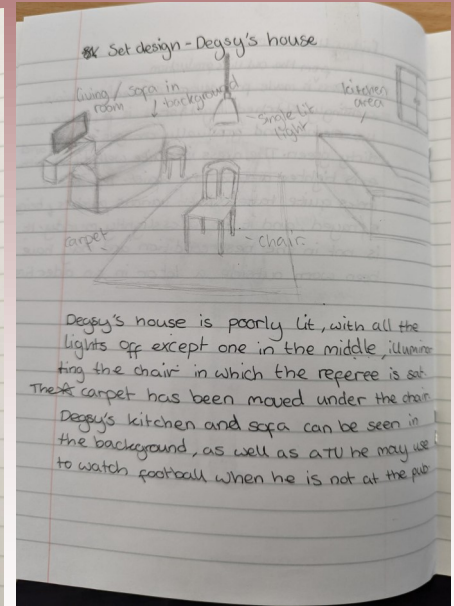 Set design - Degsy's house
living / sofa in
room background
kitchen
area
single lit
light
carpet
chair.
Degsy's house is poorly lit, with all the
lights off except one in the middle, illumina-
ting the chair in which the referee is sat.
The carpet has been moved under the chair.
Degsy's kitchen and sofa can be seen in
the background, as well as a TV he may use
to watch football when he is not at the pub